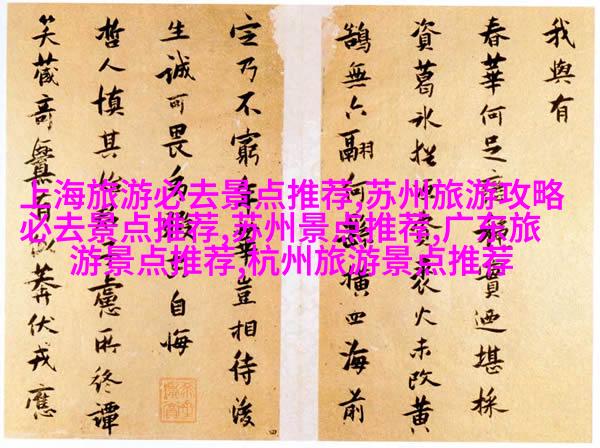 上海旅游必去景点推荐,苏州旅游攻略
必去景点推荐,苏州景点推荐,广东旅
游景点推荐,杭州旅游景点推荐
我與有
春華何足實迺堪採
資葛氷裘火未改黃
鵠無六翮何橫四海前
定乃不窮年華豈相待後
生誠可畏自悔
哲人慎其慮所終譚
笑藏奇有以莽伏戎應
四